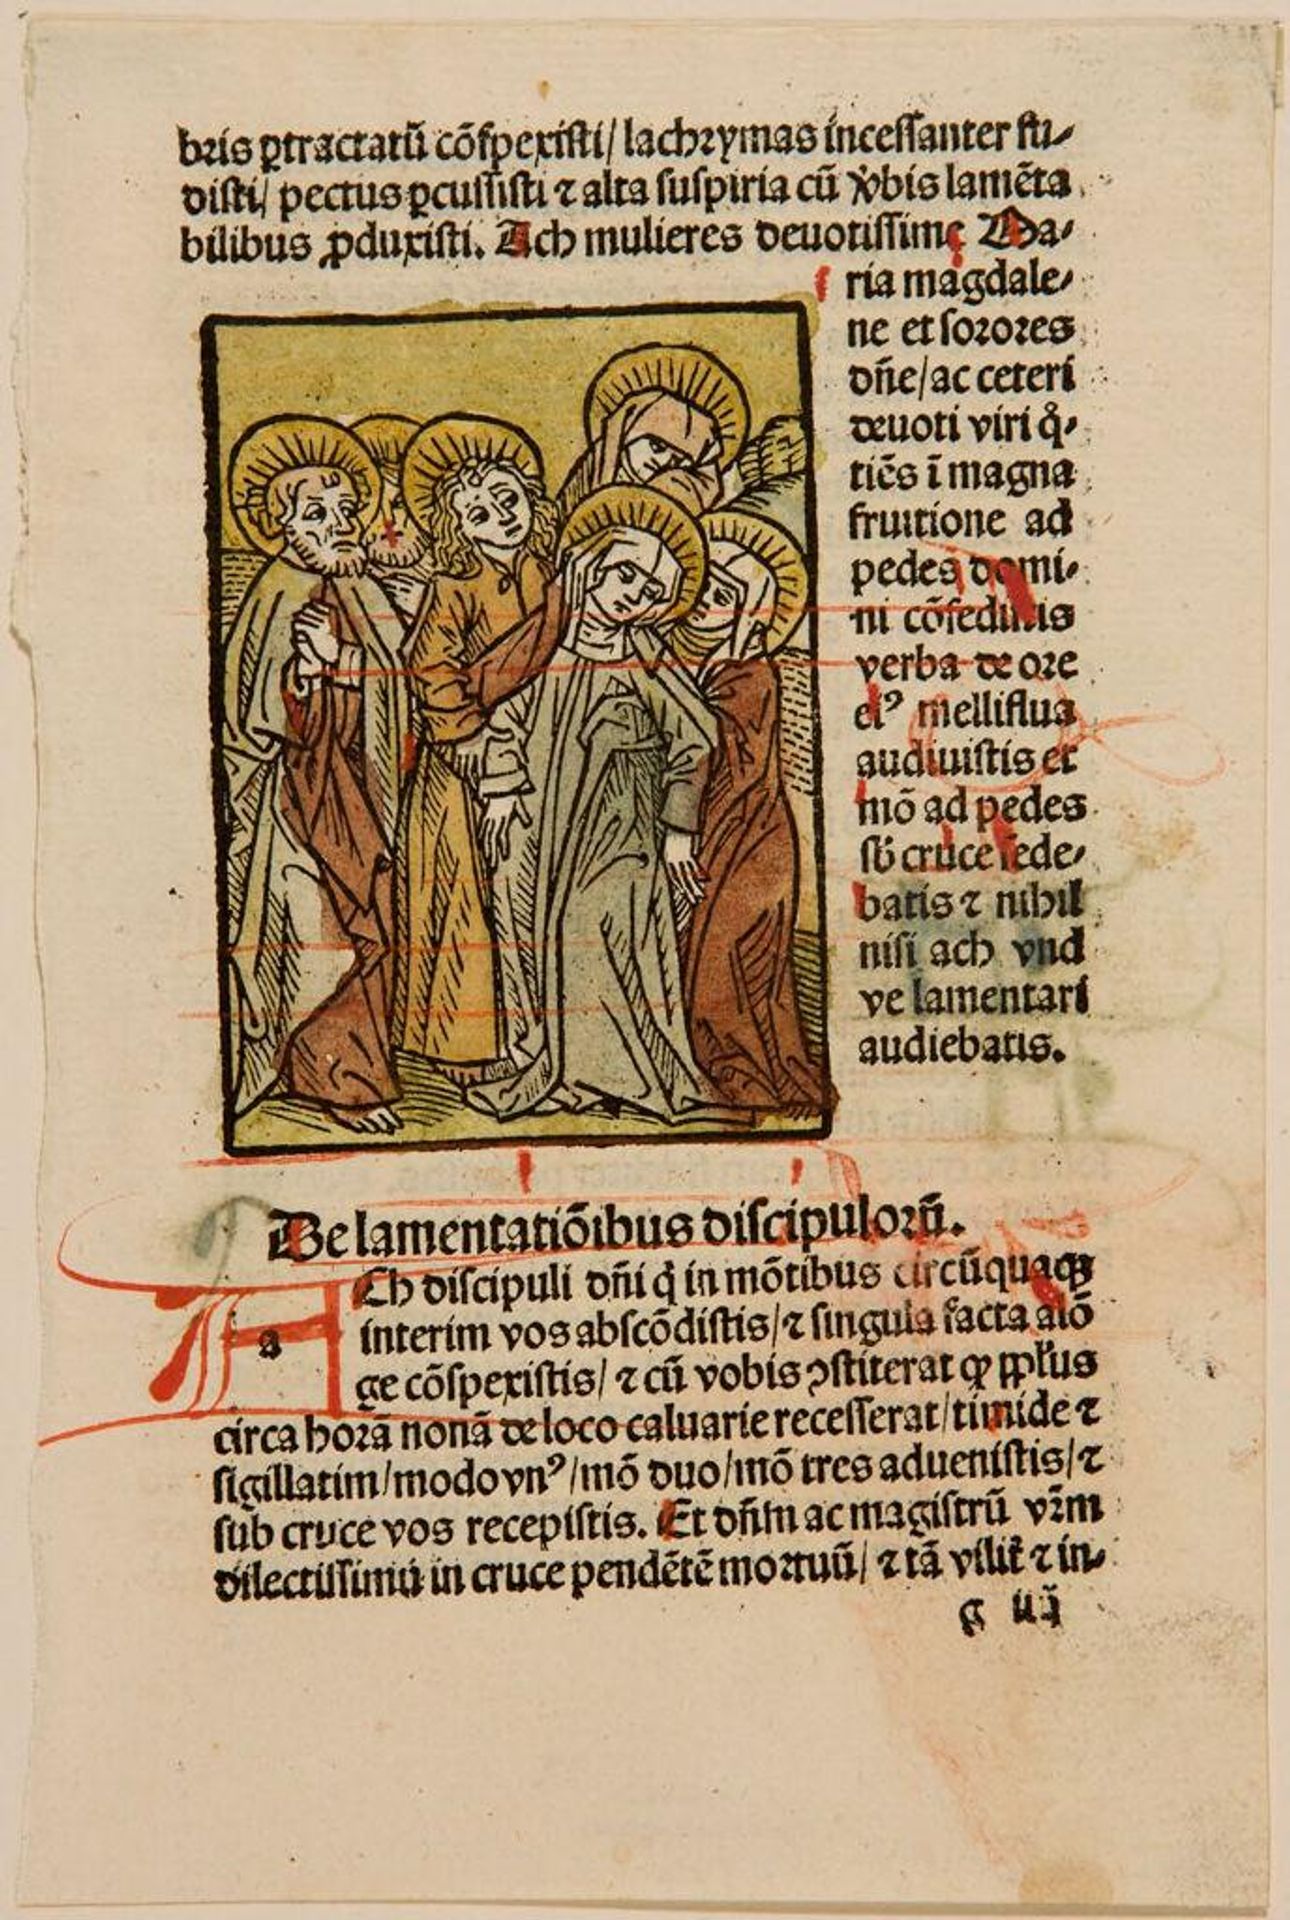 bris ꝑtractatū cõſpexiſti/ lachrymas inceſſanter fu⸗
diſti/ pectus ꝑcuſſiſti ⁊ alta ſuſpiria cū v̾bis lamēta
bilibus ꝓduxiſti. Ach mulieres deuotiſſimę Ma⸗
ria magdale⸗
ne et ſorores
dn̄e/ac ceteri
deuoti viri q̊⸗
tiēs ī magna
fruitione ad
pedes domi⸗
ni cõſediſtis
verba de ore
eiꝰ melliflua
audiuiſtis et
mõ ad pedes
ſb̄ cruce ſede⸗
batis ⁊ nihil
niſi ach vnd
ve lamentari
audiebatis.
De lamentatiõibus diſcipulorū.
a
Ch diſcipuli dn̄i q̇ in mõtibus circūquaqꝫ
interim vos abſcõdiſtis/ ⁊ ſingula facta a lõ
ge cõſpexiſtis/ ⁊ cū vobis ꝯſtiterat ꝙ ꝓpl̄us
circa horā nonā de loco caluarie receſſerat/timide ⁊
ſigillatim/modo vnꝰ/mõ duo/mõ tres adueniſtis/⁊
ſub cruce vos recepiſtis. Et dn̄m ac magiſtrū vr̄m
dilectiſſimū in cruce pendētē mortuū/ ⁊ tā vilit̄ ⁊ in⸗
g iiij